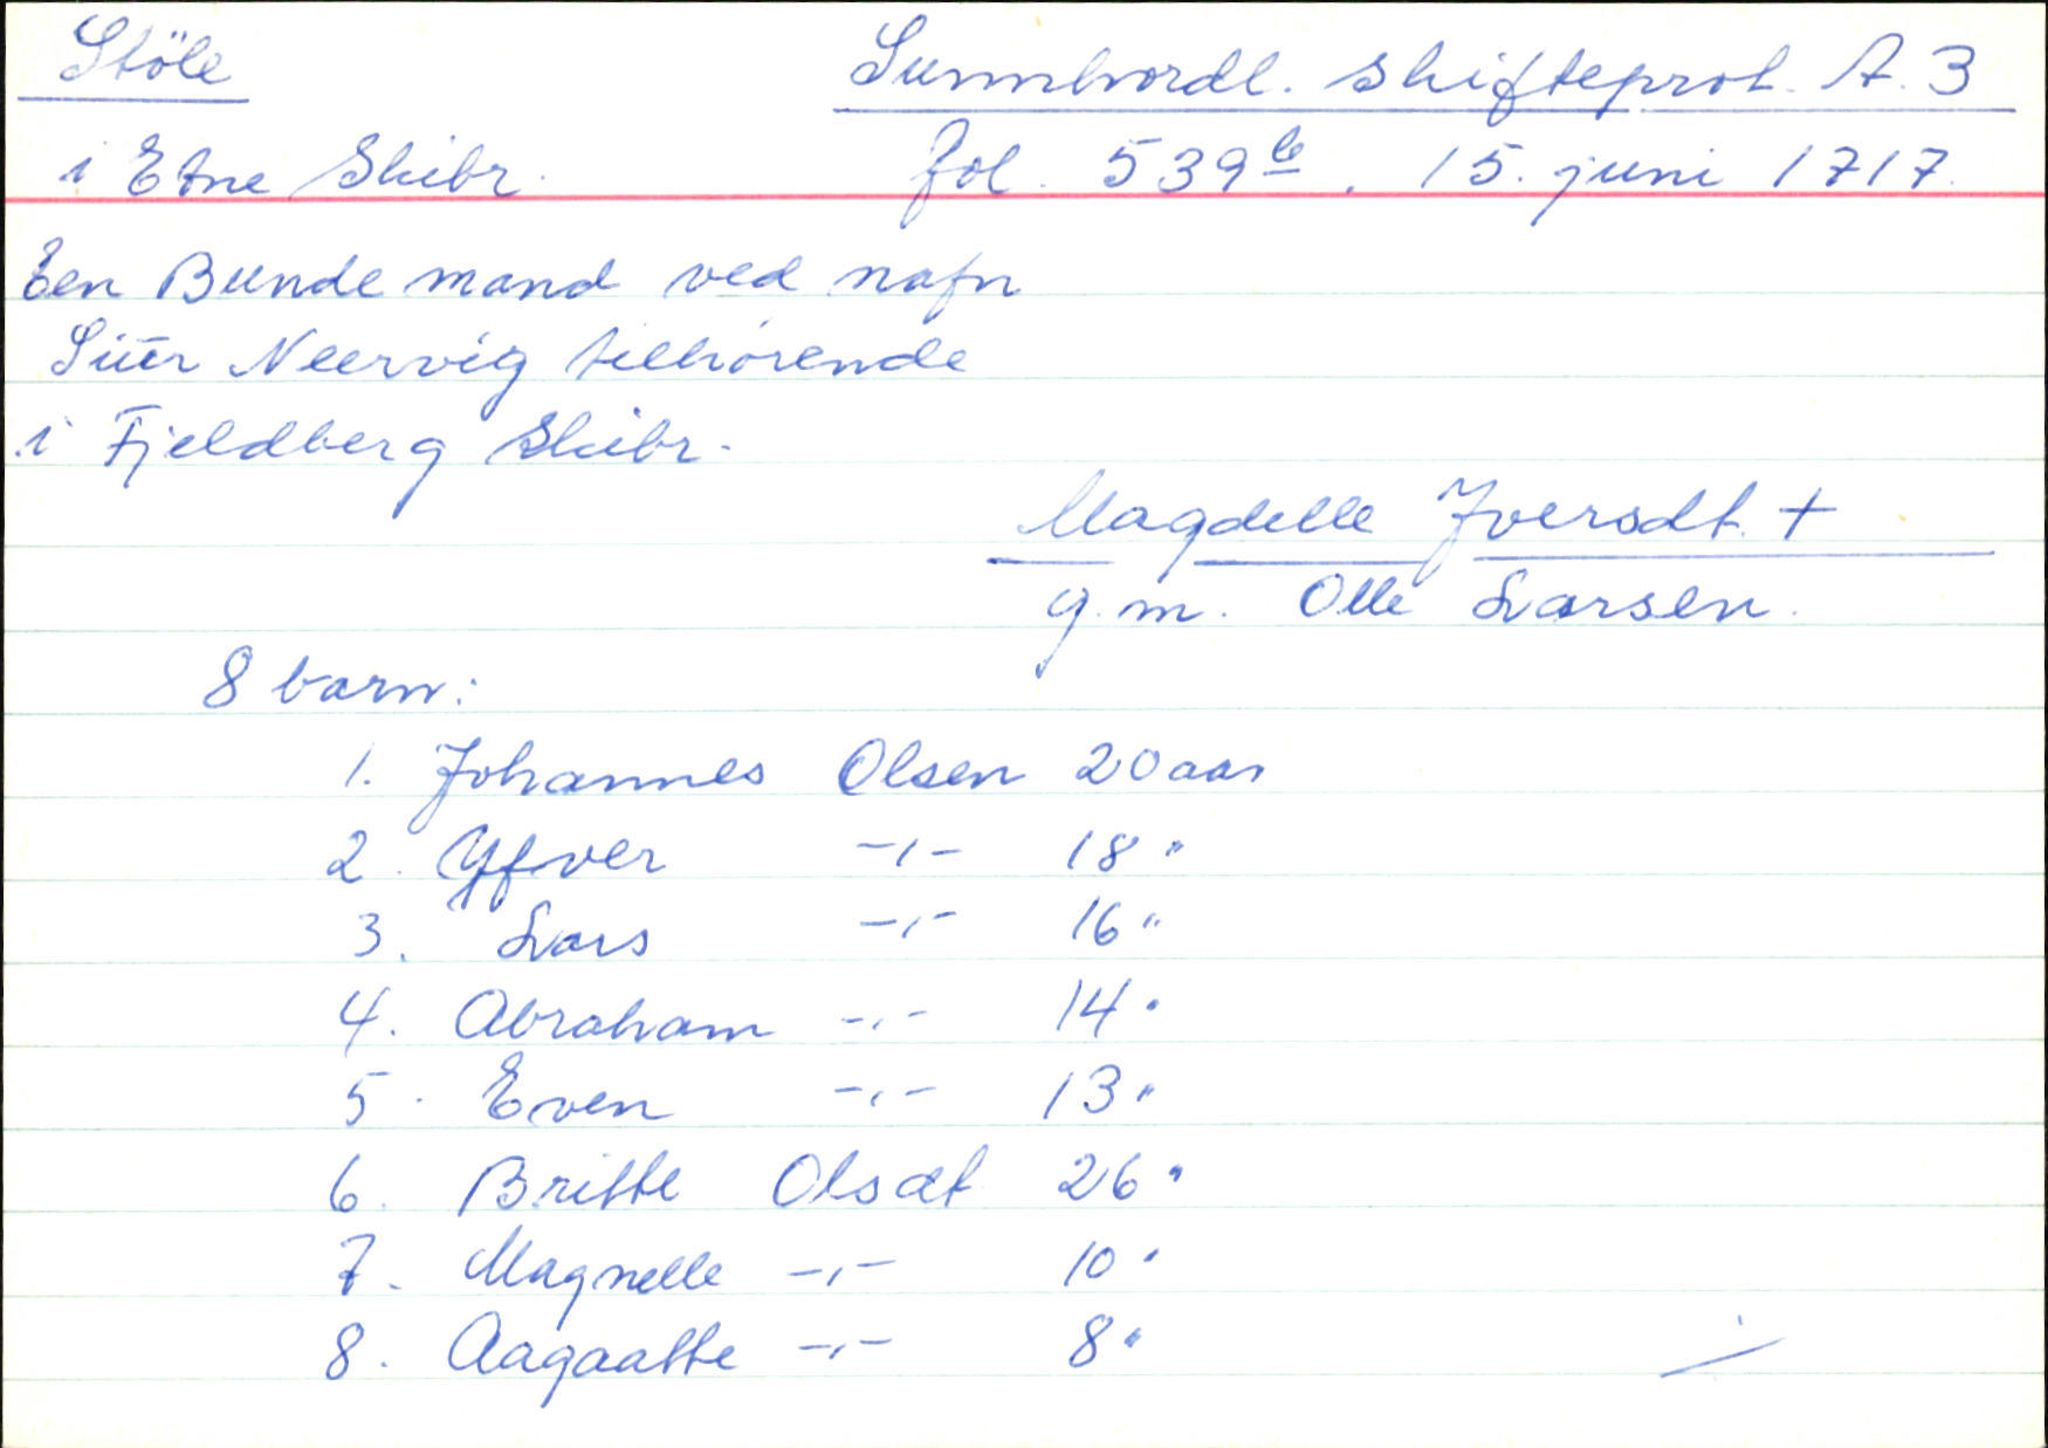 Støle Sunnhordl. skifteprot. A. 3
i Etne Skibr. fol. 539b. 15. juni 1717.
Een Bunde mand ved nafn
Siur Neervig tilhørende
i Fjeldberg Skibr.
Magdelle Iversdt. +
g.m. Olle Larsen.
8 barn:
1. Johannes Olsen 20 aar
2. Yfver -,- 18 "
3. Lars -,- 16 "
4. Abraham -,- 14 "
5. Even -,- 13 "
6. Britte Olsdt 26 "
7. Magnelle -,- 10 "
8. Aagaatte -,- 8 "